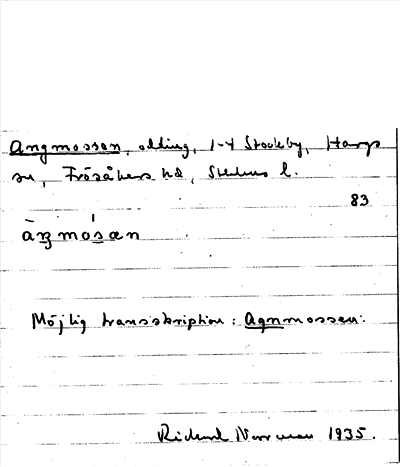 Angmossen, odling, 1-4 Stockby, Hargs
sn, Frösåkers hd, Sthlms l.
83
àŋmósæn
Möjlig transskription: Agnmossen:
Rickard Norrman 1935.